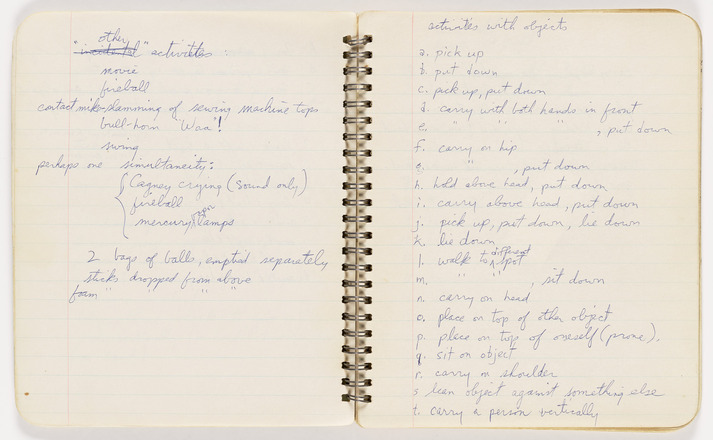 other
"incidental" activities :
movie
fireball
contact mike-slamming of sewing machine tops
bull-horn "Waa"!
swing
perhaps one simultaneity:
Cagney crying (sound only)
fireball
mercury vapor lamps
2 bags of balls, emptied separately
sticks dropped from above
foam " " "
activities with objects
a. pick up
b. put down
c. pick up, put down
d. carry with both hands in front
e. " " " , put down
f. carry on hip
g. " , put down
h. hold above head, put down
i. carry above head, put down
j. pick up, put down, lie down
k. lie down
l. walk to different spot
m. " " , sit down
n. carry on head
o. place on top of other object
p. place on top of oneself (prone).
q. sit on object
r. carry on shoulder
s lean object against something else
t. carry a person vertically